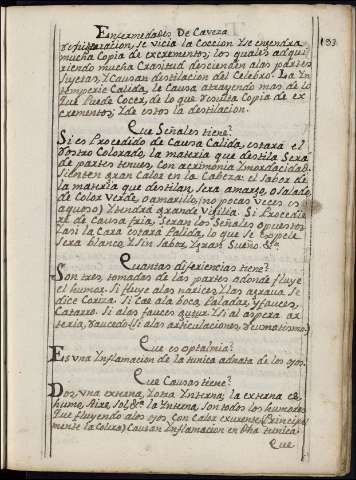 Enfermedades De Caveza
133
refrigeracion, se vicia la Coccion Y se engendra
mucha Copia de excrementos, los quales adqui
riendo mucha Crasitud descienden alas partes
Sujetas, Y Causan destilacion del Celebro. La Yn
temperie Calida, le Causa atrayendo mas de lo
Que Puede Cocer, de lo que resulta Copia de ex
crementos, Y de estos la destilacion.
Que Señales tiene?
Si es Procedido de Causa Calida, estara el
Rostro Colorado, la materia que destila Sera
de partes tenues, con acrimonia Y mordacidad.
Sienten gran Calor en la Cabeza: el Sabor de
la materia que destilan, Sera amargo, o Salado,
de Color Verde, o amarillo, (no pocas veces es
aquoso) Y tendrá grande Vigilia. Si Procedie
re de Causa fria, Seran los Señales opuestos
Y asi la Cara estará Palida, lo que Se expele
Sera blanco, Y Sin Sabor, Y gran Sueño &a.
Quantas diferiencias tiene?
Son tres, tomadas de las partes adonde fluye
el humor. Si fluye alas narices, Y las agrava Se
dice Coriza. Si Cae ala boca, Paladar, Y fauces,
Catarro. Si alas fauces gutur Y si al aspera ar
teria, raucedo (Si alas articulaciones rreumatismo.)
Que es optalmia?
Es una Ynflamacion de la tunica adnata de los ojos.
Que Causas tiene?
Dos, una externa, Y otra Ynterna; la externa es
humo, Aire, Sol, &a la Ynterna Son todos los humores
Que fluyendo alos ojos, Con Calor exurente, (Principal
mente la Colera) Causan Ynflamacion en Dha tunica.
Que